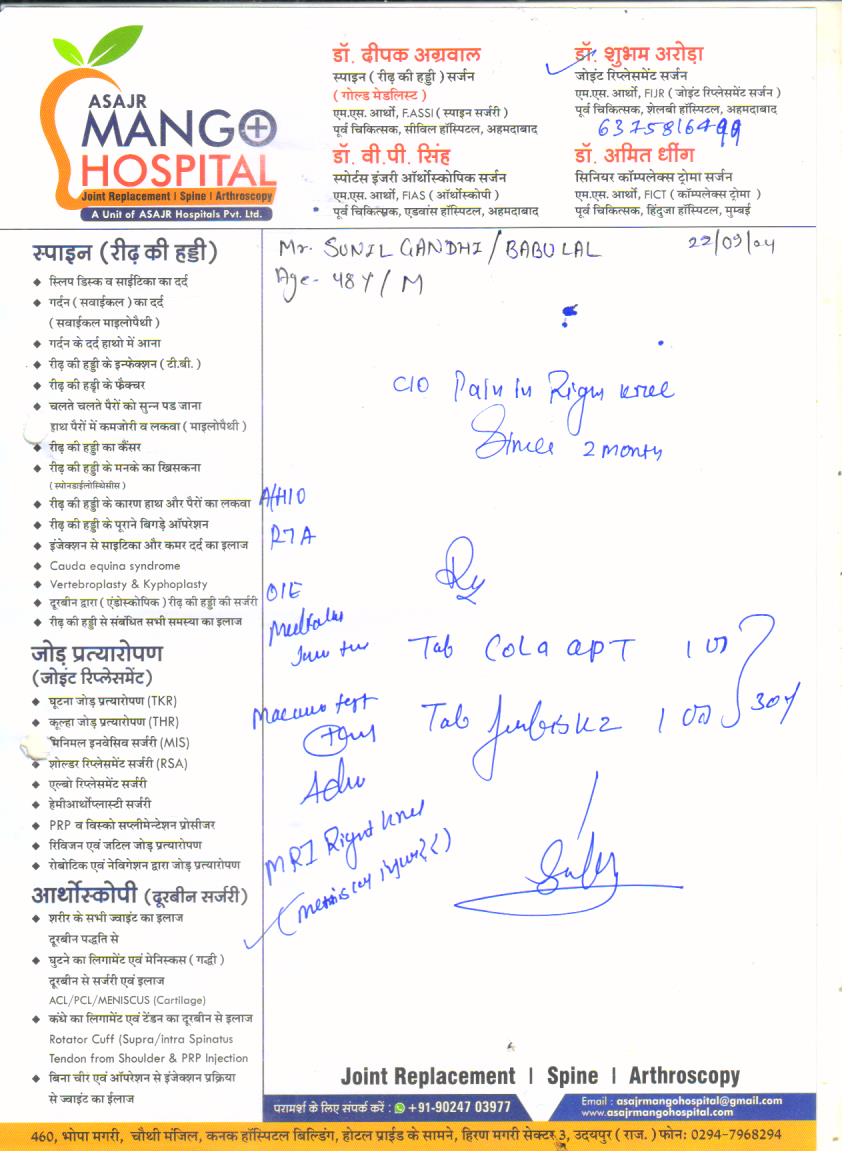 ASAJR
MANGO
HOSPITAL
Joint Replacement | Spine | Arthroscopy
A Unit of ASAJR Hospitals Pvt. Ltd.
डॉ. दीपक अग्रवाल
स्पाइन ( रीढ़ की हड्डी ) सर्जन
( गोल्ड मेडलिस्ट )
एम.एस. आर्थो, F.ASSI ( स्पाइन सर्जरी )
पूर्व चिकित्सक, सीविल हॉस्पिटल, अहमदाबाद
डॉ. वी.पी. सिंह
स्पोर्टस इंजरी ऑर्थोस्कोपिक सर्जन
एम.एस. आर्थो, FIAS ( ऑर्थोस्कोपी )
पूर्व चिकित्सक, एडवांस हॉस्पिटल, अहमदाबाद
डॉ. शुभम अरोड़ा
जोइंट रिप्लेसमेंट सर्जन
एम.एस. आर्थो, FIJR ( जोइंट रिप्लेसमेंट सर्जन )
पूर्व चिकित्सक, शेलबी हॉस्पिटल, अहमदाबाद
6375816499
डॉ. अमित धींग
सिनियर कॉम्पलेक्स ट्रोमा सर्जन
एम.एस. आर्थो, FICT ( कॉम्पलेक्स ट्रोमा )
पूर्व चिकित्सक, हिंदुजा हॉस्पिटल, मुम्बई
स्पाइन (रीढ़ की हड्डी)
स्लिप डिस्क व साईटिका का दर्द
गर्दन ( सवाईकल ) का दर्द
( सवाईकल माइलोपैथी )
गर्दन के दर्द हाथो में आना
रीढ़ की हड्डी के इन्फेक्शन ( टी.बी. )
रीढ़ की हड्डी के फ्रैक्चर
चलते चलते पैरों को सुन्न पड जाना
हाथ पैरों में कमजोरी व लकवा ( माइलोपैथी )
रीढ़ की हड्डी का कैंसर
रीढ़ की हड्डी के मनके का खिसकना
( स्पोनडाईलोस्थिसीस )
रीढ़ की हड्डी के कारण हाथ और पैरों का लकवा
रीढ़ की हड्डी के पूराने बिगड़े ऑपरेशन
इंजेक्शन से साइटिका और कमर दर्द का इलाज
Cauda equina syndrome
Vertebroplasty & Kyphoplasty
दूरबीन द्वारा ( एंडोस्कोपिक ) रीढ़ की हड्डी की सर्जरी
रीढ़ की हड्डी से संबंधित सभी समस्या का इलाज
जोड़ प्रत्यारोपण
(जोइंट रिप्लेसमेंट)
घूटना जोड़ प्रत्यारोपण (TKR)
कूल्हा जोड़ प्रत्यारोपण (THR)
मिनिमल इनवेसिव सर्जरी (MIS)
शोल्डर रिप्लेसमेंट सर्जरी (RSA)
एल्बो रिप्लेसमेंट सर्जरी
हेमीआर्थोप्लास्टी सर्जरी
PRP व विस्को सप्लीमेन्टेशन प्रोसीजर
रिविजन एवं जटिल जोड़ प्रत्यारोपण
रोबोटिक एवं नेविगेशन द्वारा जोड़ प्रत्यारोपण
आर्थोस्कोपी (दूरबीन सर्जरी)
शरीर के सभी ज्वाइंट का इलाज
दूरबीन पद्धति से
घुटने का लिगामेंट एवं मेनिस्कस ( गद्दी )
दूरबीन से सर्जरी एवं इलाज
ACL/PCL/MENISCUS (Cartilage)
कंधे का लिगामेंट एवं टेंडन का दूरबीन से इलाज
Rotator Cuff (Supra/intra Spinatus
Tendon from Shoulder & PRP Injection
बिना चीर एवं ऑपरेशन से इंजेक्शन प्रक्रिया
से ज्वाइंट का ईलाज
Mr. SUNIL GANDHI / BABULAL 22/09/24
Age - 48Y / M
C/O Pain in Right knee
Since 2 month
A/H/O
RTA
Rx
O/E
Tab Cola apt 1
Tab 1
Adv
MRI Right knee
Joint Replacement | Spine | Arthroscopy
परामर्श के लिए संपर्क करें : +91-90247 03977
Email : asajrmangohospital@gmail.com
www.asajrmangohospital.com
460, भोपा मगरी, चौथी मंजिल, कनक हॉस्पिटल बिल्डिंग, होटल प्राईड के सामने, हिरण मगरी सेक्टर 3, उदयपुर ( राज. ) फोन: 0294-7968294